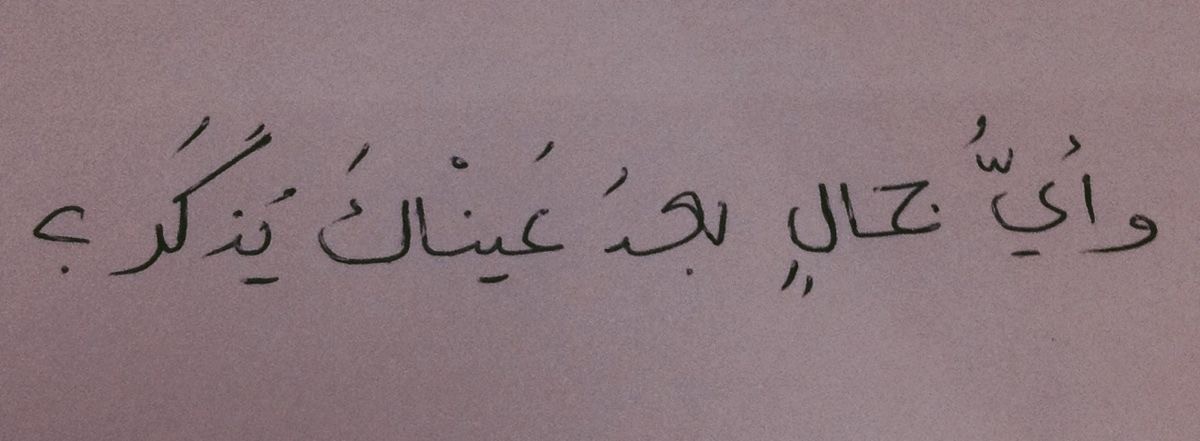 وأيُّ جمالٍ بعدُ عَينْاكَ يُذكَر ؟